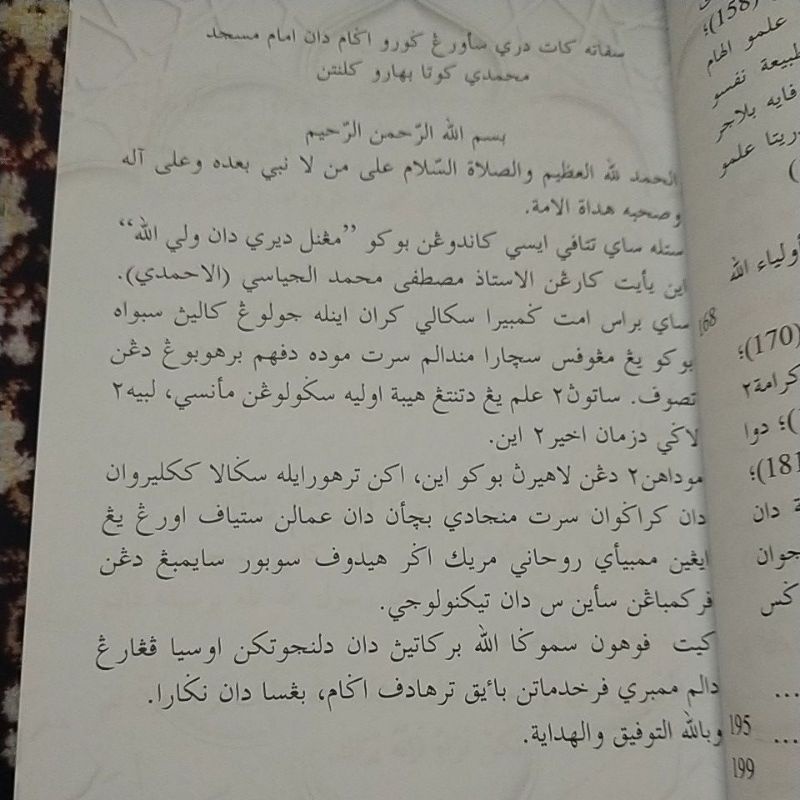 سڤاته كات دري سأورڠ ݢورو اݢام دان امام مسجد
محمدي كوتا بهارو كلنتن
بسم الله الرّحمن الرّحيم
الحمد لله العظيم والصلاة السّلام على من لا نبي بعده وعلى آله
وصحبه هداة الامة.
ستله ساي تتافي ايسي كاندوڠن بوكو ”مڠنل ديري دان ولي الله“
اين يأيت كارڠن الاستاذ مصطفى محمد الجياسي (الاحمدي).
ساي براس امت ݢمبيرا سكالي كران اينله جولوڠ كاليڽ سبواه
بوكو يڠ مڠوفس سچارا مندالم سرت موده دفهم برهوبوڠ دڠن
تصوف. ساتوڽ٢ علم يڠ دتنتڠ هيبة اوليه سݢولوڠن مأنسي، لبيه٢
لاݢي دزمان اخير٢ اين.
موداهن٢ دڠن لاهيرڽ بوكو اين، اكن ترهورايله سݢالا ككليروان
دان كراݢوان سرت منجادي بچأن دان عمالن ستياف اورڠ يڠ
ايڠين ممبيأي روحاني مريك اݢر هيدوف سوبور سايمبڠ دڠن
فركمباڠن سأين س دان تيكنولوجي.
كيت فوهون سموݢا الله بركاتيڽ دان دلنجوتكن اوسيا ڤڠارڠ
دالم ممبري فرخدماتن بائيق ترهادف اݢام، بڠسا دان نݢارا.
وبالله التوفيق والهداية.
(158)؛
علمو الهام
طبيعة نفسو
فايه بلاجر
علمو
أولياء الله
168
(170)؛
كرامة٢
)؛ دوا
181)؛
دان
195
199